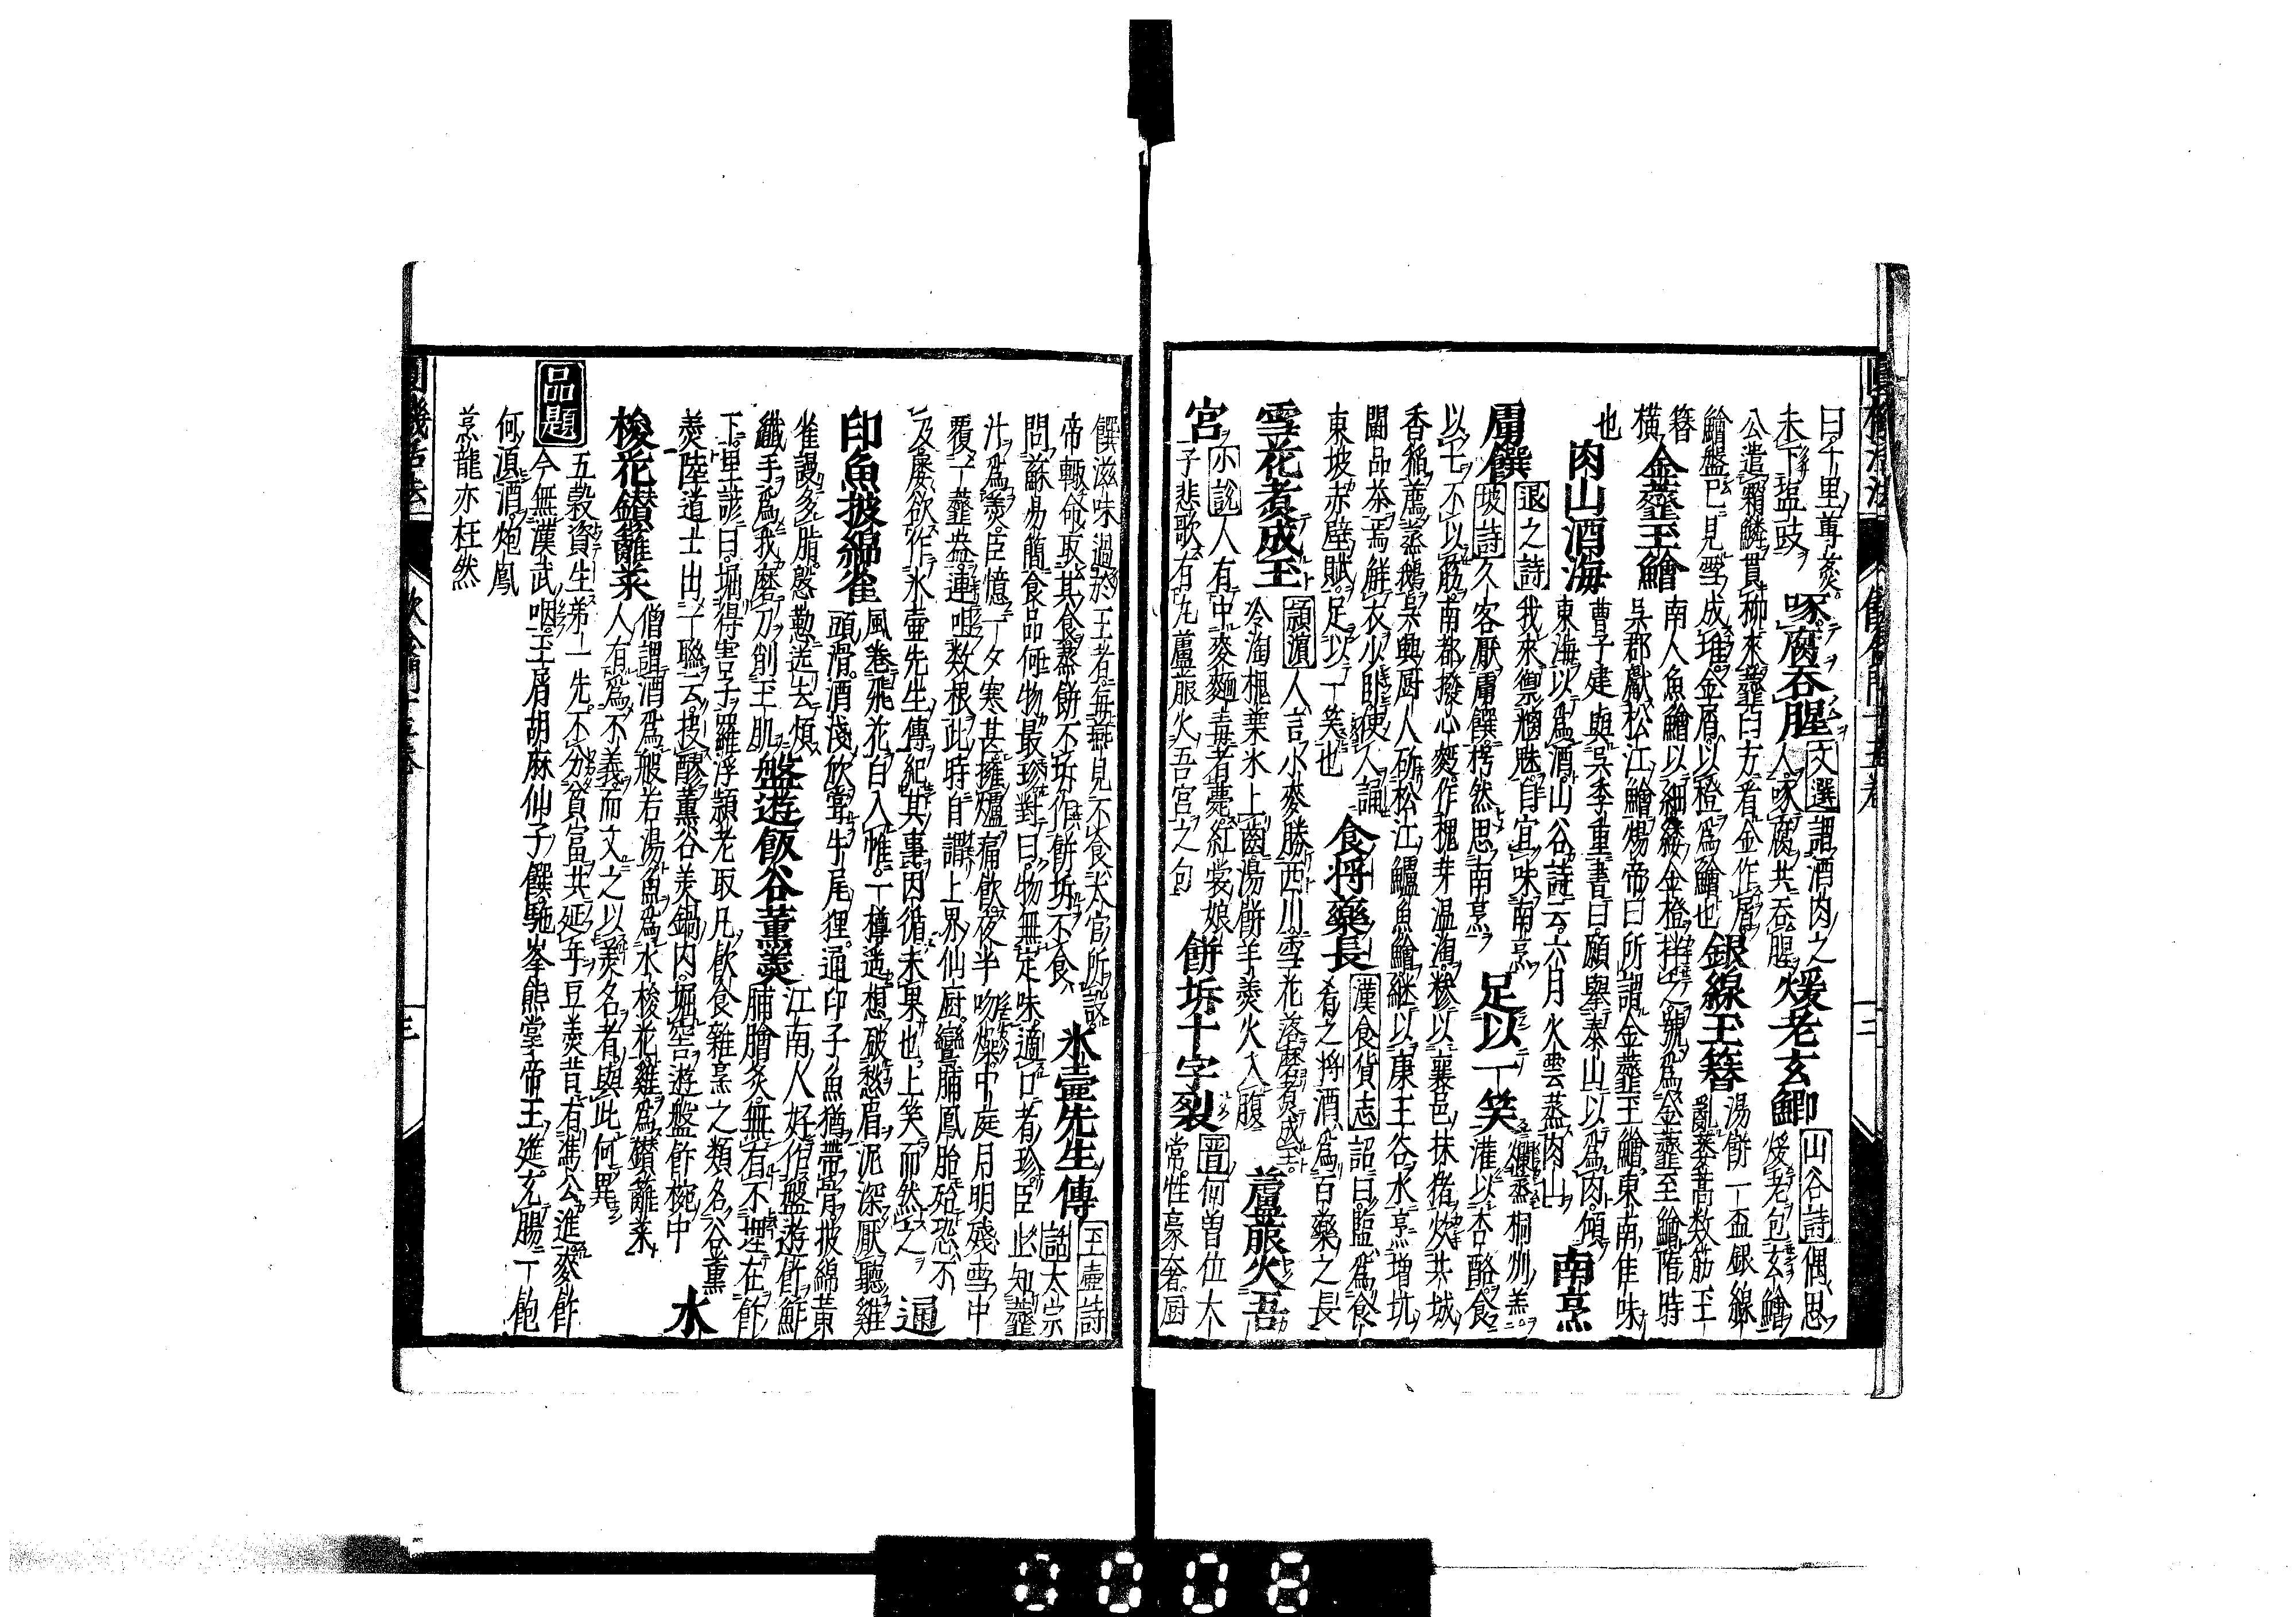 曰千里蓴羹
未下塩豉
啄腐吞腥
文選謂酒肉之
人啄腐共吞腥
煖老玄鯽
山谷詩偶思
煖老包玄鱠
公遣霜鱗貫柳來虀臼方看金作屑
鱠盤已見雪成堆金屑以橙爲鱠也
銀線玉簪
湯餅一盃銀線
亂蔞蒿数筋玉
簪
橫
金虀玉鱠
南人魚鱠以細縷金橙拌之號爲金虀玉鱠隋時
吳郡獻松江鱠煬帝曰所謂金虀玉鱠東南佳味
也
肉山酒海
曹子建與吳季重書曰願舉泰山以爲肉傾
東海以爲酒山谷詩云六月火雲蒸肉山
南烹
退之詩我來禦魑魅自宜味南烹
膚饌
坡詩久客厭膚饌愕然思南烹
足以一笑
爛蒸桐州羔
灌以杏酪食
以匕不以筋南都撥心麪作槐芽温淘糝以襄邑抹猪炊共城
香稻薦蒸鵝吳興厨人斫松江鱸魚鱠継以康王谷水烹增坑
闘品茶焉鮮衣少卧使人誦
東坡赤壁賦足以一笑也
食將藥長
漢食貨志詔曰塩爲食
肴之將酒爲百藥之長
雪花煮成玉
頴濵人言小麥勝西川雪花落磨煮成玉
冷淘槐葉氷上齒湯餅羊羹火入腹
蘆菔火吾
宮
小說人有中麥麺毒者夢紅裳娘
子悲歌有九蘆菔火吾宮之句
餅坼十字裂
晋何曽位太
常性豪奢厨
饌滋味過於王者每燕見不食太官所設
帝輙命取其食蒸餅不坼作餅坊不食
氷壺先生傳
玉壺詩
話太宗
問蘇易簡食品何物最珍對曰物無定味適口者珍臣止知虀
汁爲羹臣憶一夕寒甚擁爐痛飲夜半吻燥中庭月明殘雪中
覆一虀盎連咀数根此時自謂上界仙厨鸞脯鳳胎殆恐不
及屢欲作氷壺先生傳紀其事因循未果也上笑而然之
通
印魚披綿雀
風卷飛花自入帷一樽遙想破愁眉泥深厭聽雞
頭滑酒淺欣嘗牛尾狸通印子魚猶帶骨披綿黄
雀謾多脂慇懃送去煩
纖手爲我磨刀削玉肌
盤遊飯谷董羹
江南人好作盤遊飯鮓
脯膾炙無有不埋在飯
下里諺曰掘得窖子羅浮頴老取凡飲食雜烹之類名谷董
羹陸道士出一聯云投醪董谷羹鍋内掘窖遊盤飯椀中
水
梭花鑚籬菜
僧謂酒爲般若湯魚爲水梭花雞爲鑚籬菜
人有爲不義而文之以美名者與此何異
品題
五穀資生第一先不分貧富共延年豆羹昔有馮公進麥飯
今無漢武咽玉屑胡麻仙子饌駞峯熊掌帝王筵充腸一飽
何湏酒炮鳳
烹龍亦枉然
0008